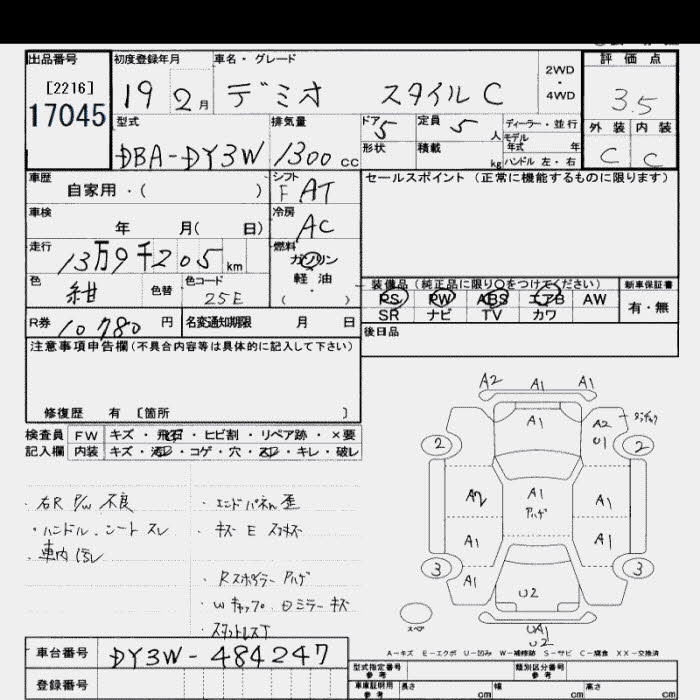 出品番号 初度登録年月 車名・グレード 評価点
[2216] 2WD・4WD
17045 19 2月 デミオ スタイルC 3.5
型式 排気量 ドア 5 定員 5人 ディーラー・並行 外装 内装
モデル年式 年
DBA-DY3W 1300cc 形状 積載 kg ハンドル 左・右 C C
車歴 シフト セールスポイント (正常に機能するものに限ります)
自家用・( ) F AT
車検 冷房
年 月( 日) AC
走行 燃料
13万9千205km ガソリン
色 色替 色コード 軽油
紺 25E ( )
装備品(純正品に限り○をつけてください) 新車保証書
PS PW ABS エアB AW 有・無
SR ナビ TV カワ
R券 10780円 名変通知期限 月 日 後日品
注意事項申告欄(不具合内容等は具体的に記入して下さい)
修復歴 有 〔箇所 〕
検査員 FW キズ・飛石・ヒビ割・リペア跡・×要
記入欄 内装 キズ・汚レ・コゲ・穴・・キレ・破レ
A2 A1 A1
A1 A2 U1
2 2
A2 A1 A1
アハゲ
A1 A1
3 A1 3
U2
スペア UA1
U2
・右R P/W 不良
・ハンドル、シート スレ
・車内 汚レ
・エンドパネル 歪
・キズ E
・Rスポイラー アハゲ
・Wキャップ、ミラー キズ
・スタットレスT
A-キズ E-エクボ U-凹み W-補修跡 S-サビ C-腐食 XX-交換済
車台番号 DY3W-484247
登録番号
型式指定番号 参考 類別区分番号 参考
車庫証明用 参考 長さ cm 幅 cm 高さ cm